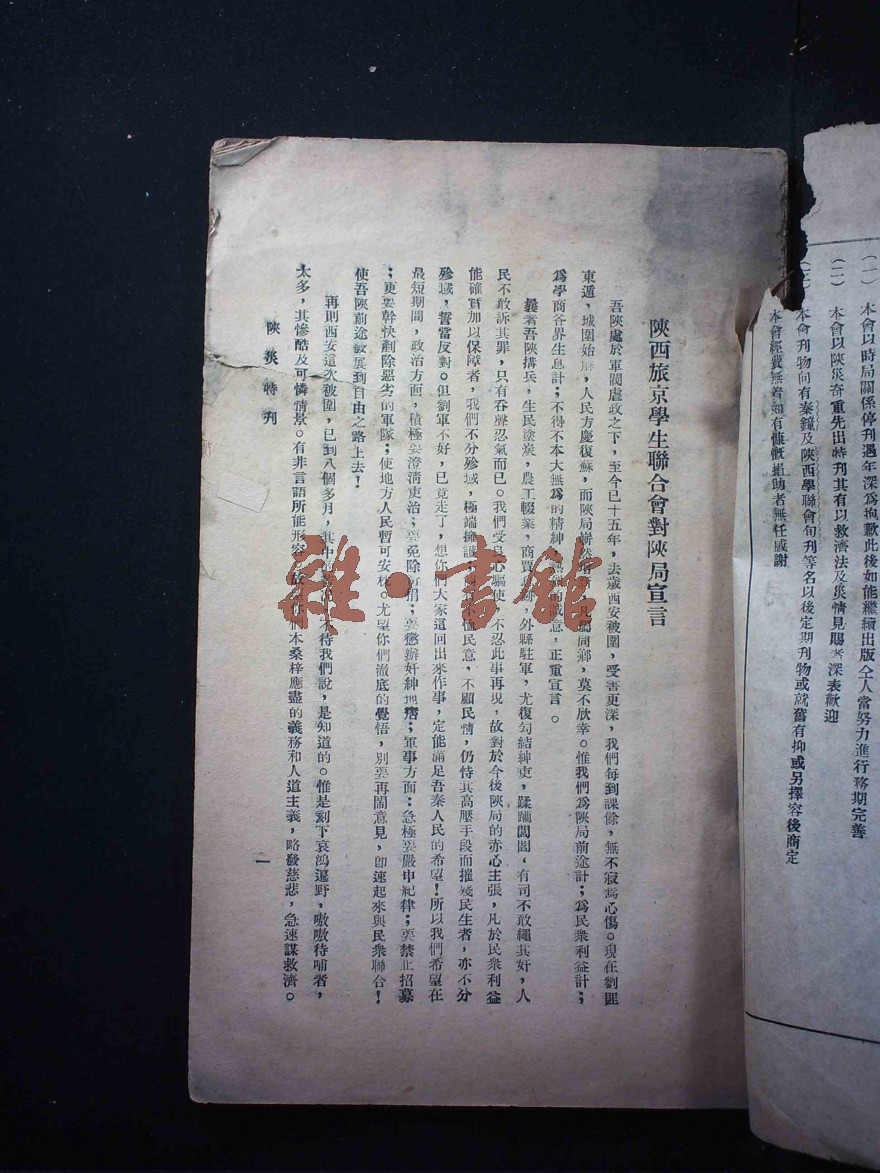 (一)本會以時局關係停刊過年深為抱歉此後如能繼續出版仝人當努力進行務期完善
(二)本會以陝災奇重先出特刊其有以救濟法及災情見賜者深表歡迎
本會刊物向有秦鐘及陝西學聯會旬刊等名以後定期刊物或就舊有抑或另擇容後商定
本會經費無着如有慷慨捐助者無任感謝
陝西旅京學生聯合會對陝局宣言
吾陝處於軍閥虐政之下,至今已十五年,去歲西安被圍,受害更深,我們每到課餘,無不寂焉心傷。現在劉匪
東遁,城圍始解,人民方慶復蘇,而陝局嶄然,凡屬同鄉,莫不欣幸。惟我們為陝局前途計;為民衆利益計;
為學商各界生息計;不得不本大無為的精神,意,正重宣言。
曩者吾陝搆兵,生民塗炭,農工輟業,商賈,外縣駐軍,尤復勾結紳吏,蹂躪閭閻,有司不敢繩其奸,人
民不敢訴其罪,只有吞聲忍氣而已。我們受良心驅使,不忍此事再現,故對於今後陝局的赤心主張,凡於民衆利益
能確實加以保障者,我們不分殄域,極端擁護;不恤民意,不顧民情,仍恃其高壓手段而摧殘民生者,亦不分
殄域,誓當反對。但劉軍不好,已竟走了,想你們大家這回出來作事,定能滿足吾秦人民的希望!所以我們希望在
最短期間,政治方面,積極要澄清吏治;要免除苛捐;要懲辦奸紳地痞;軍事方面:急極要嚴申紀律;要禁止招募
;更要幹快剷除惡劣的軍隊;使地方人民暫可安枕。尤望你們澈底的覺悟,別要再鬧意見,卽速起來與民衆聯合!
使吾陝前途發展到自由之路上去!
再則西安這次被圍,已到八個多月,其中不待我們說,是知道的。惟是劉下哀鴻遍野,嗷嗷待哺者,
太多,其慘酷及可憐情景。有非言語所能形容,們本桑梓應盡的義務和人道主義,略發慈悲,急速謀救濟。
陝災特刊
一
雜·書館